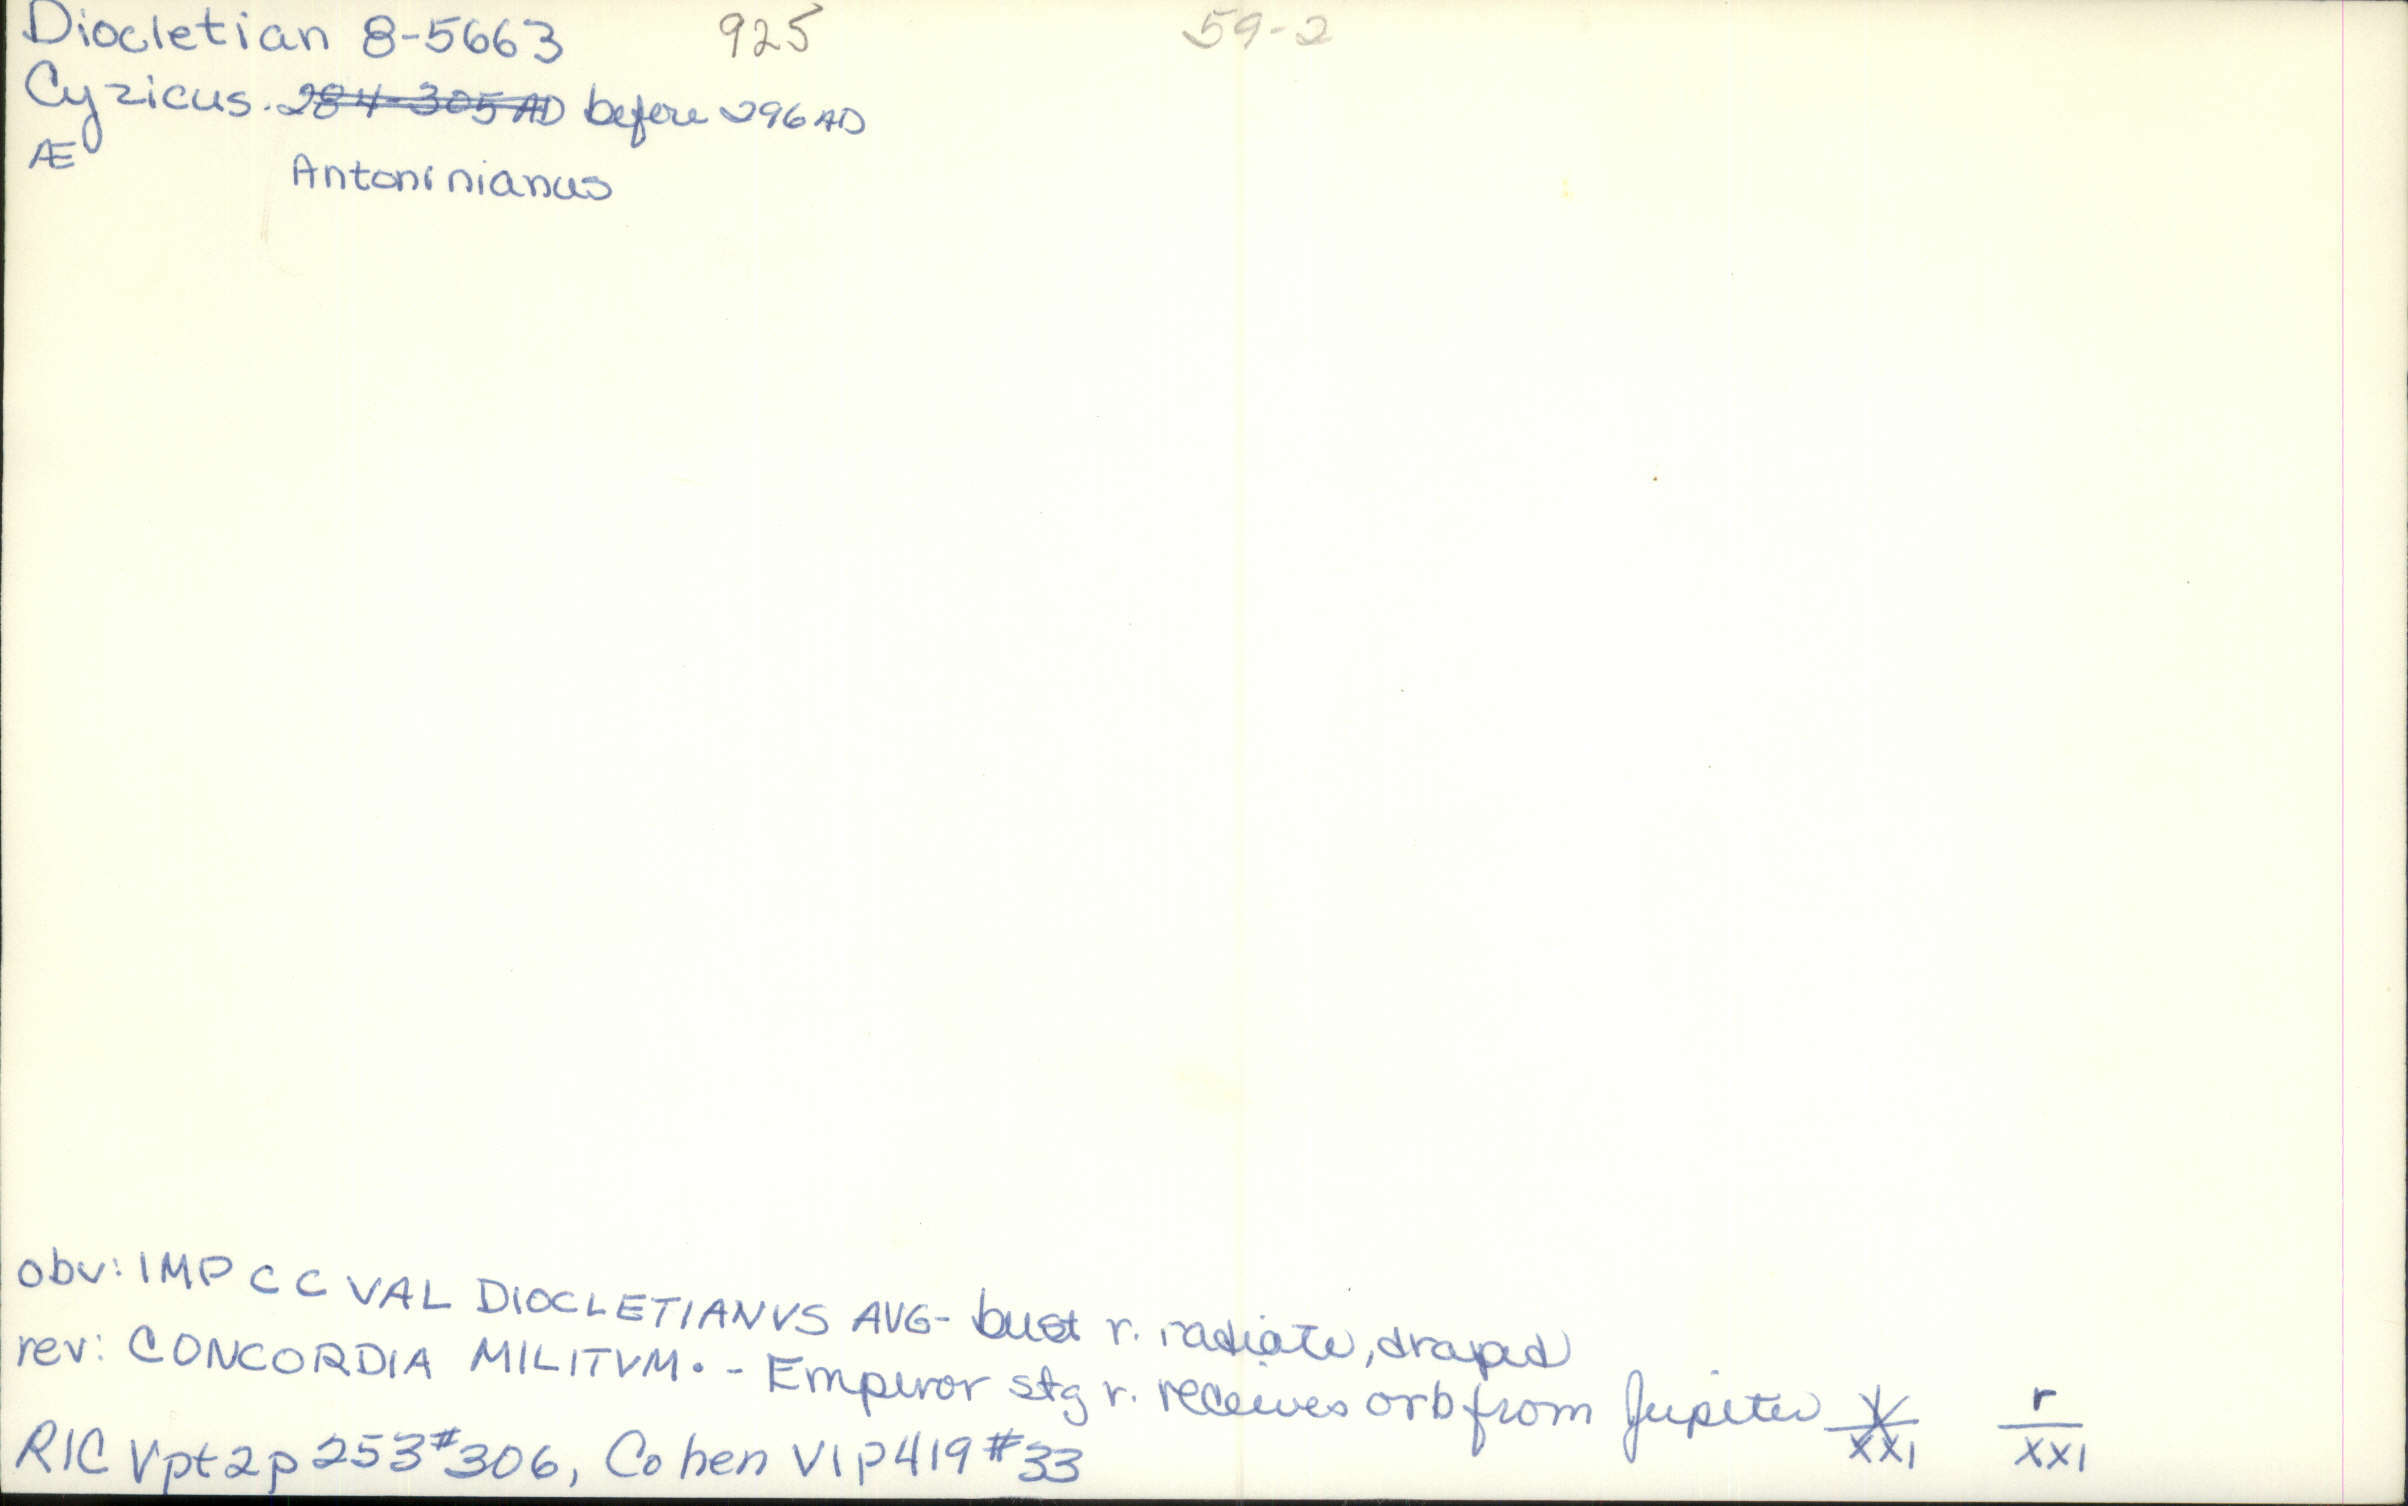 Diocletian 8-5663 925 59-2
Cyzicus. 284-305 AD before 296 AD
Æ Antoninianus
obv: IMP C C VAL DIOCLETIANVS AVG - bust r. radiate, draped
rev: CONCORDIA MILITVM. - Emperor stg r. receives orb from Jupiter
r
XXI XXI
RIC V pt 2 p 253 #306, Cohen VI p 419 #33